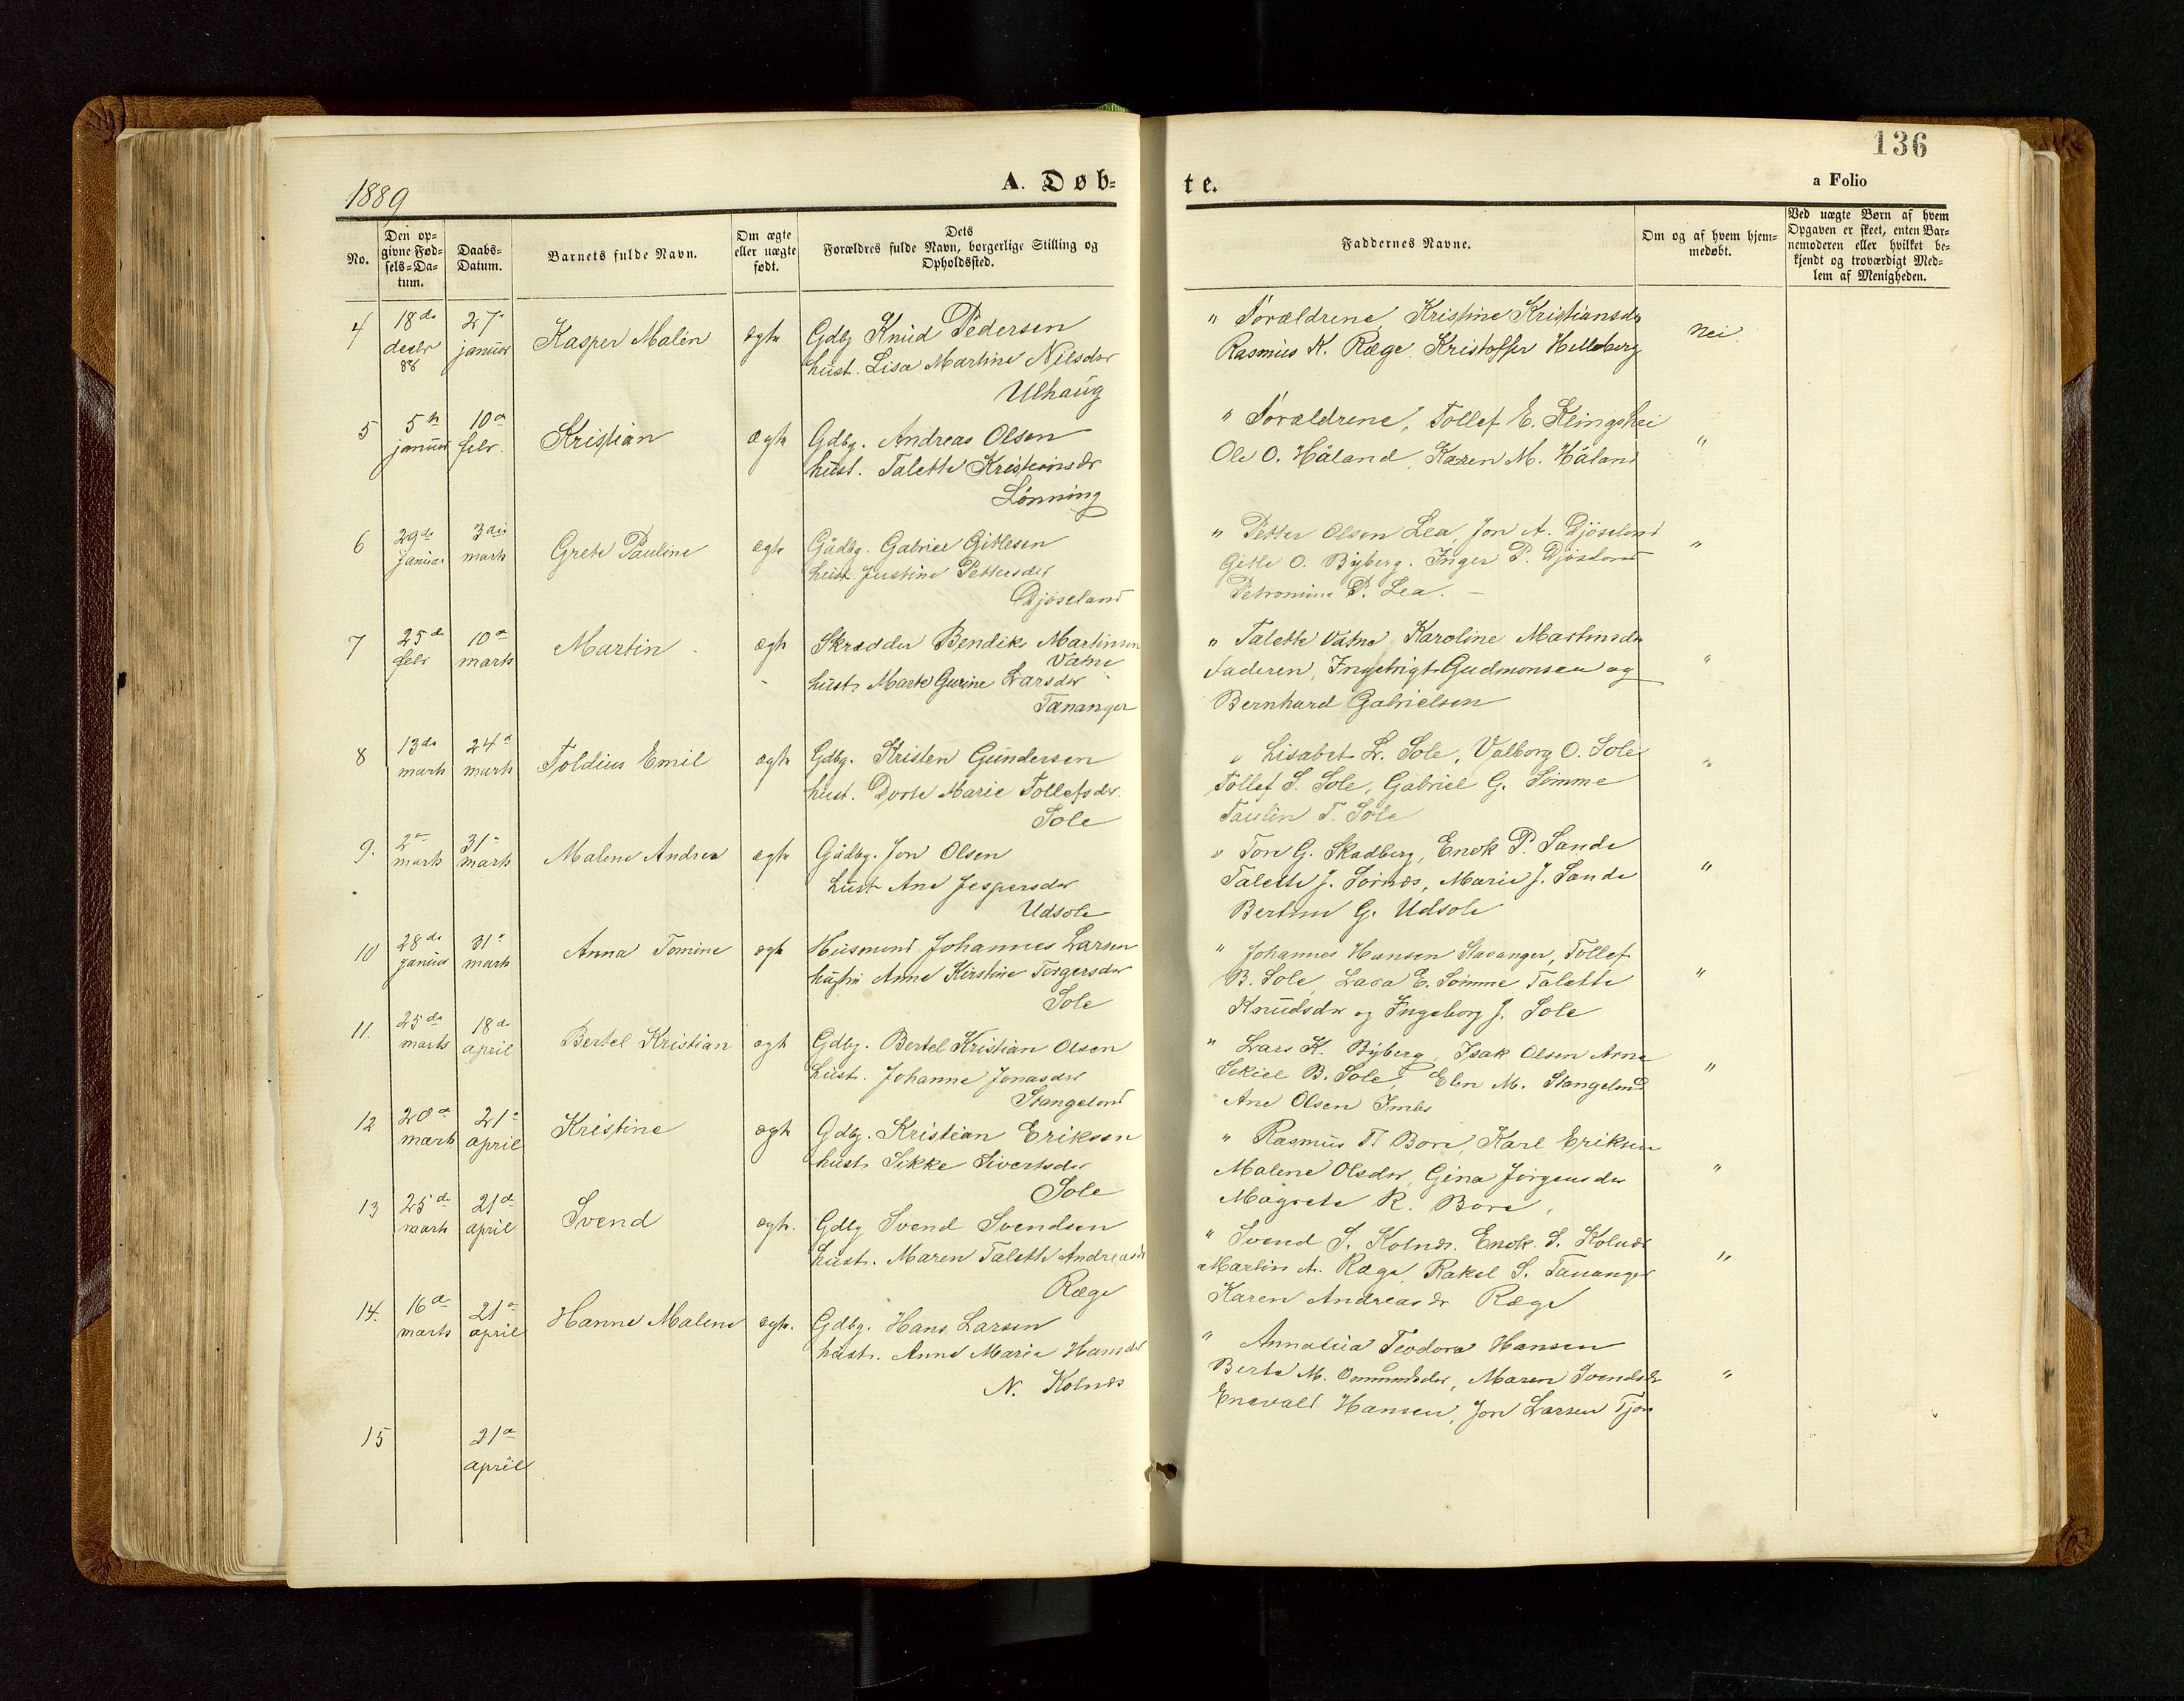 136
1889
A. Døb-
te.
a Folio
No.
Den op-
givne Fød-
sels-Da-
tum.
Daabs-
Datum.
Barnets fulde Navn.
Om ægte
eller uægte
født.
Dets
Forældres fulde Navn, borgerlige Stilling og
Opholdssted.
Faddernes Navne.
Om og af hvem hjem-
medøbt.
Ved uægte Børn af hvem
Opgaven er skeet, enten Bar-
nemoderen eller hvilket be-
kjendt og troværdigt Med-
lem af Menigheden.
4
18de
decbr
88
27
januar
Kasper Malin
ægte
Gdbg Knud Pedersen
hust. Lisa Martine Nilsdtr
Ulhaug
" Forældrene, Kristine Kristiansdtr
Rasmus K. Ræge, Kristoffer Helleberg
nei
5
5te
januar
10de
febr.
Kristian
ægte
Gdbg. Andreas Olsen
hust. Talette Kristiansdr
Lönning
" Forældrene, Tollef E. Klingshei
Ole O. Håland, Karen M. Håland
"
6
29de
januar
3die
marts
Grete Pauline
ægte
Gådbg. Gabriel Gitlesen
hust. Justine Pettersdtr
Djöseland
" Petter Olsen Lea, Jon A. Djöseland
Gitle O. Byberg. Inger P. Djöseland
Petromine P. Lea. —
"
7
25de
febr
10de
marts
Martin
ægte
Skrædder Bendik Martinsen
Vatne
hust. Marte Gurine Larsdtr
Tananger
" Talette Vatne, Karoline Martinsdtr
Faderen, Ingebrigt Gudmonsen og
Bernhard Gabrielsen
"
8
13de
marts
24de
marts
Toldius Emil
ægte
Gdbg. Kristen Gundersen
hust. Dorte Marie Tollefsdtr.
Sole
" Lisabet L. Sole, Valborg O. Sole
Tollef S. Sole, Gabriel G. Sömme
Taulin T. Sole
"
9.
2de
marts
31te
marts
Malene Andrea
ægte
Gådbg. Jon Olsen
hust. Ane Jespersdtr
Udsole
" Tore G. Skadberg, Enok P. Sande
Talette J. Sörnæs, Marie J. Sande
Bertine G. Udsole
"
10
28de
januar
31te
marts
Anna Tomine
ægte
Husmand Johannes Larsen
hustru Anne Kirstine Torgersdtr
Sole
" Johannes Hansen Stavanger, Tollef
B. Sole, Lava E. Sömme, Talette
Knudsdtr og Ingeborg J. Sole
"
11.
25de
marts
18de
april
Bertel Kristian
ægte
Gdbg. Bertel Kristian Olsen
hust. Johanne Jonasdtr
Stangeland
" Lars K. Byberg, Isak Olsen Arne
Sekiel B. Sole, Elen M. Stangeland
Ane Olsen
"
12
20de
marts
21de
april
Kristine
ægte
Gdbg. Kristian Eriksen
hust. Sikke Sivertsdtr
Sole
" Rasmus T. Bore, Karl Eriksen
Malene Olsdtr, Gina Jörgensdtr
Magrete R. Bore,
"
13
25de
marts
21de
april
Svend
ægte.
Gdbg Svend Svendsen
hust. Maren Talette Andreasdr
Ræge
" Svend S. Kolnæs. Enok S. Kolnæs
Martin A. Ræge, Rakel S. Tananger
Karen Andreasdr Ræge
"
14.
16de
marts
21de
april
Hanne Malene
ægte.
Gdbg. Hans Larsen
hust. Anne Maria Hansdtr
N. Kolnæs
" Teodora Hansen
Berta M. Omundsdtr, Maren Svendsdr
Enevald Hansen, Jon Larsen
"
15
21de
april